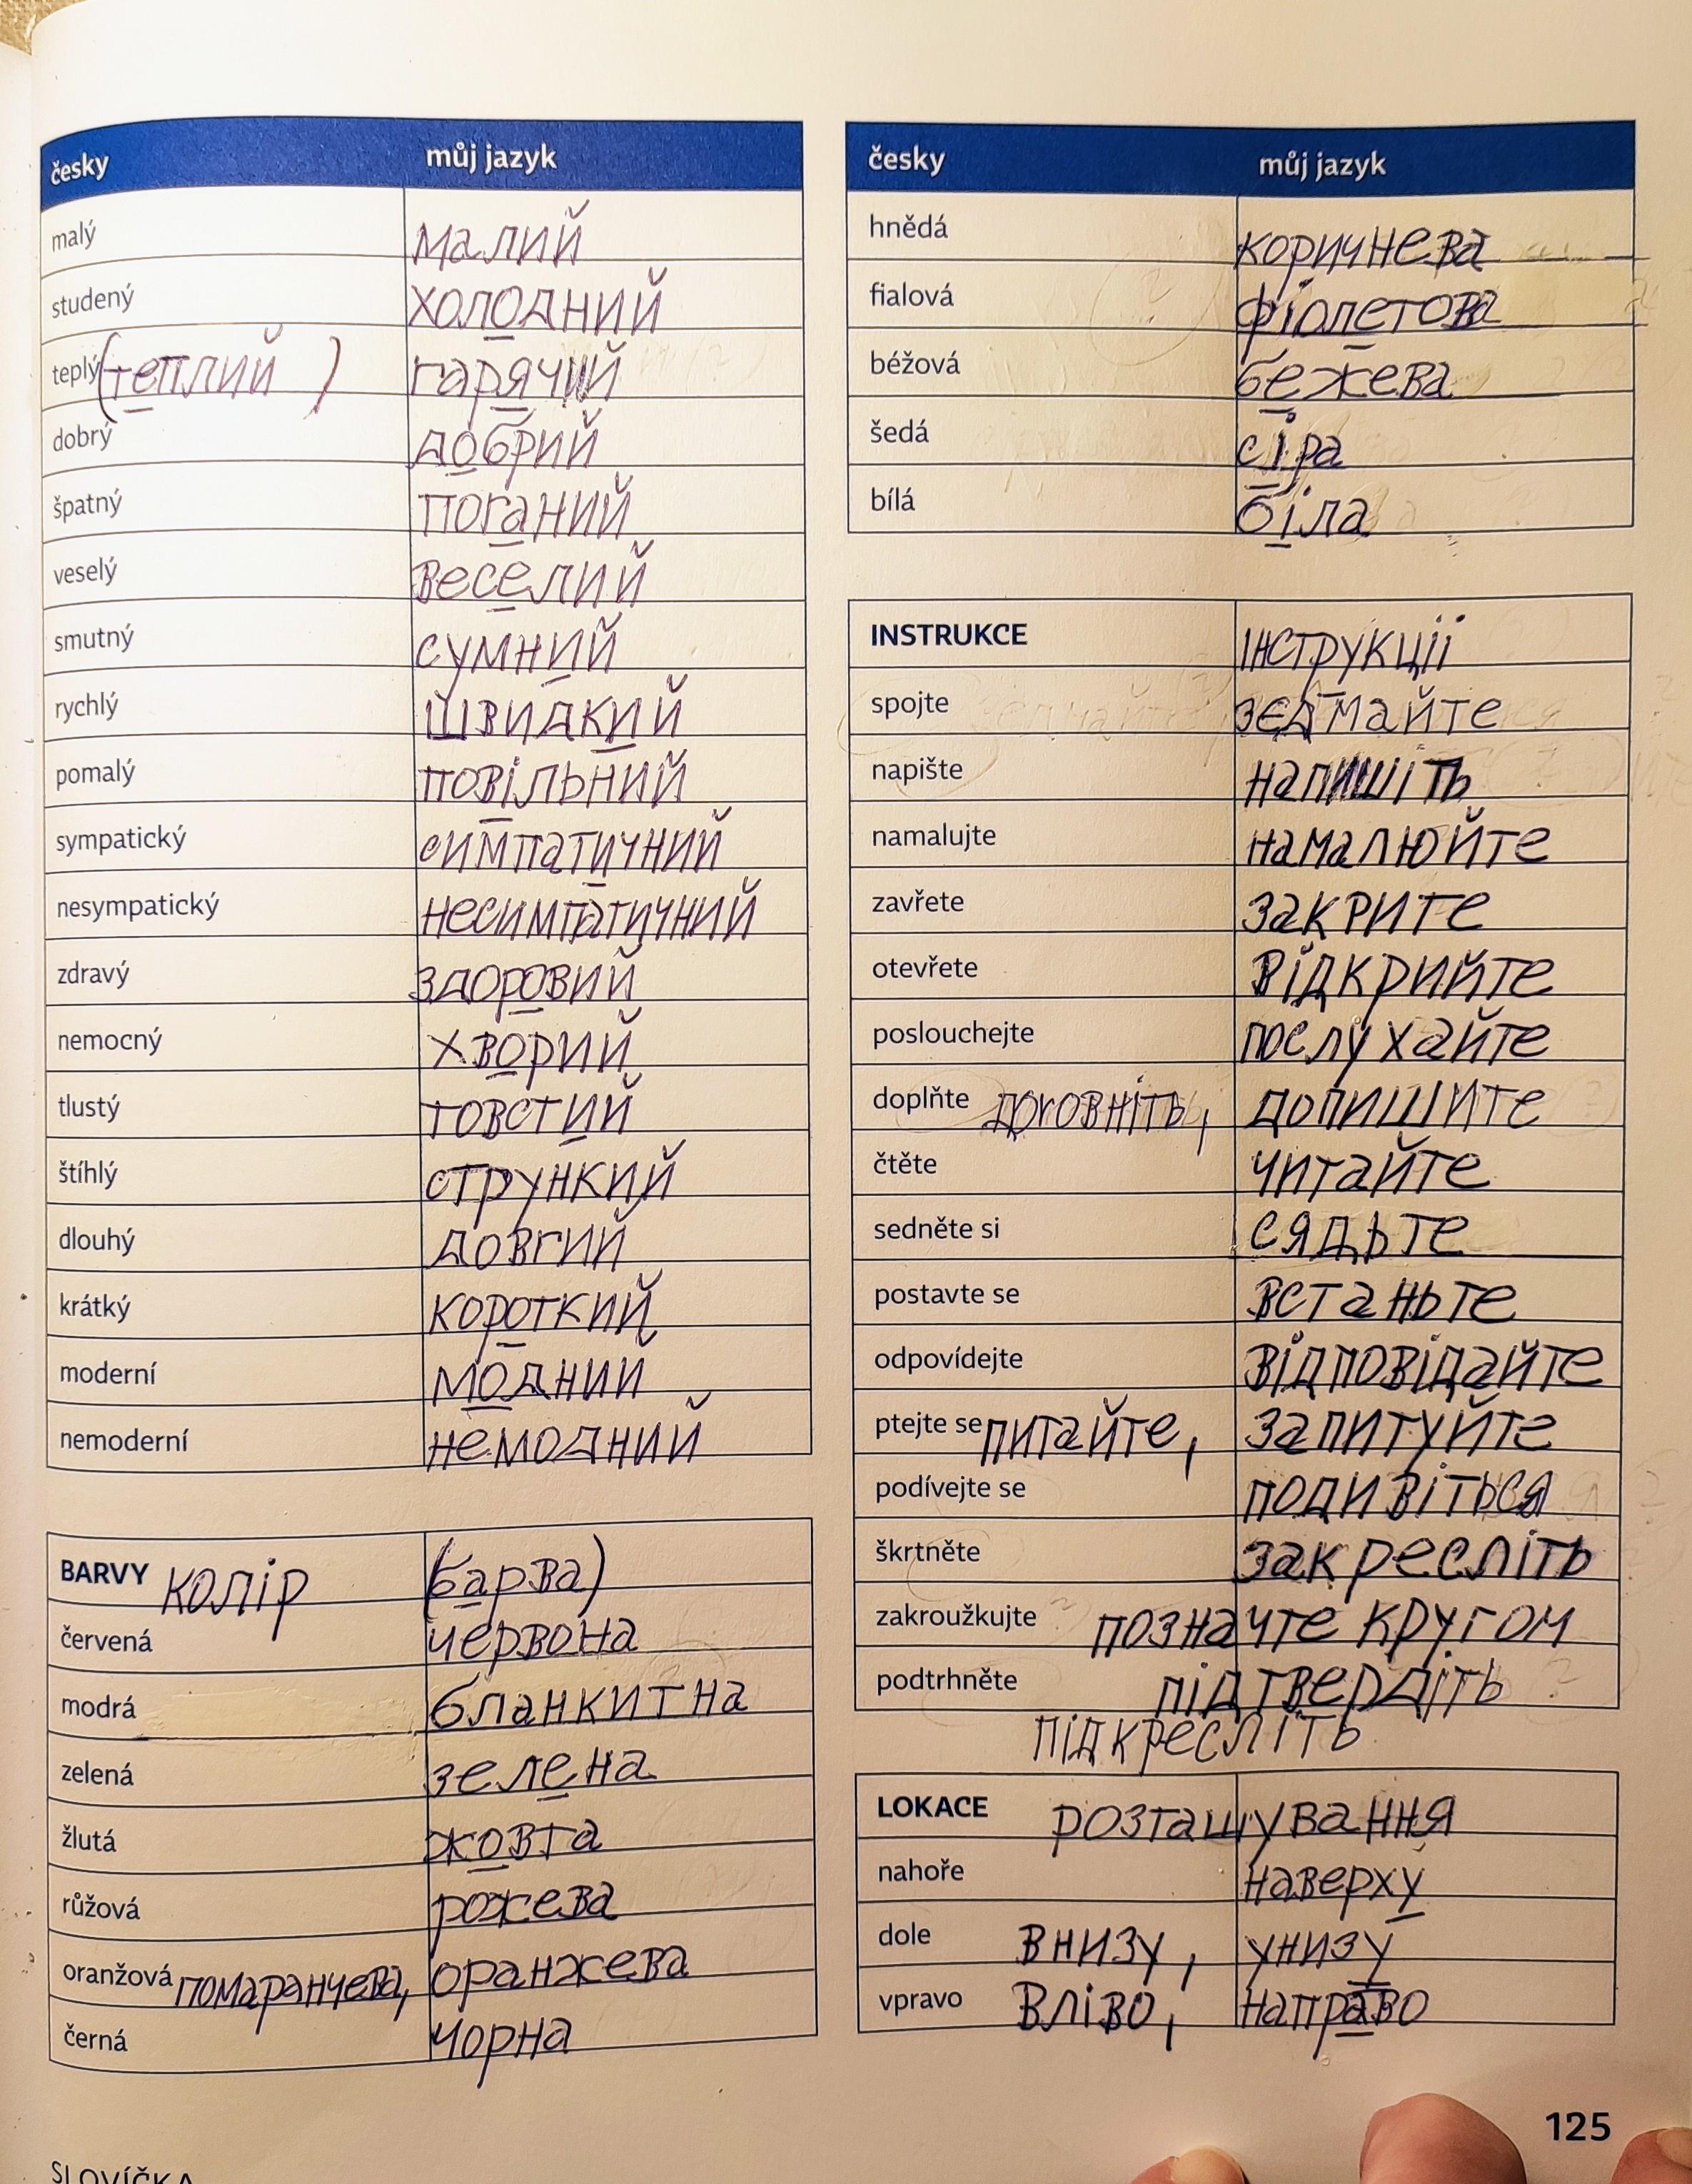 česky můj jazyk
malý малий
studený холодний
teplý (теплий ) гарячий
dobrý добрий
špatný поганий
veselý веселий
smutný сумний
rychlý швидкий
pomalý повільний
sympatický симпатичний
nesympatický несимпатичний
zdravý здоровий
nemocný хворий
tlustý товстий
štíhlý стрункий
dlouhý довгий
krátký короткий
moderní модний
nemoderní немодний
BARVY колір (барва)
červená червона
modrá бланкитна
zelená зелена
žlutá жовта
růžová рожева
oranžová помаранчева, оранжева
černá чорна
česky můj jazyk
hnědá коричнева
fialová фіолетова
béžová бежева
šedá сіра
bílá біла
INSTRUKCE інструкціі
spojte
napište напишіть
namalujte намалюйте
zavřete закрите
otevřete відкрийте
poslouchejte послухайте
doplňte допишите
čtěte читайте
sedněte si сядьте
postavte se встаньте
odpovídejte відповідайте
ptejte se питайте, запитуйте
podívejte se подивіться
škrtněte закресліть
zakroužkujte позначте кругом
podtrhněte підтвердіть
підкресліть
LOKACE розташування
nahoře наверху
dole внизу, унизу
vpravo вліво, направо
125
SLOVÍČKA